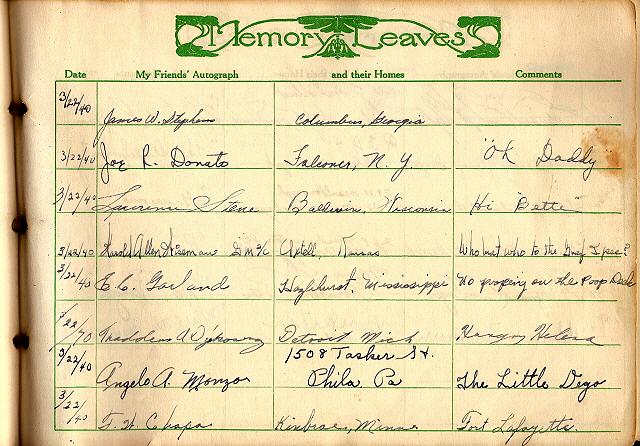 Memory Leaves
Date My Friends' Autograph and their Homes Comments
3/22/40 James W. Stephens Columbus, Georgia
3/22/40 Joe R. Donato Falconer, N. Y. "OK Daddy"
3/22/40 Lawrence Stene Baldwin, Wisconsin Hi "Bette"
3/22/40 Harold Allen Axtell, Kansas Who but who to the
3/22/40 E. C. Garland Hazlehurst, Mississippi No on the Poop Deck
3/22/40 Thaddeus A. Detroit Mich Hungry
3/22/40 Angelo A. Monzo 1508 Tasker St.
Phila Pa The Little Dego
3/22/40 F. W. Chapa Kinbrae, Minn. Fort Lafayette.